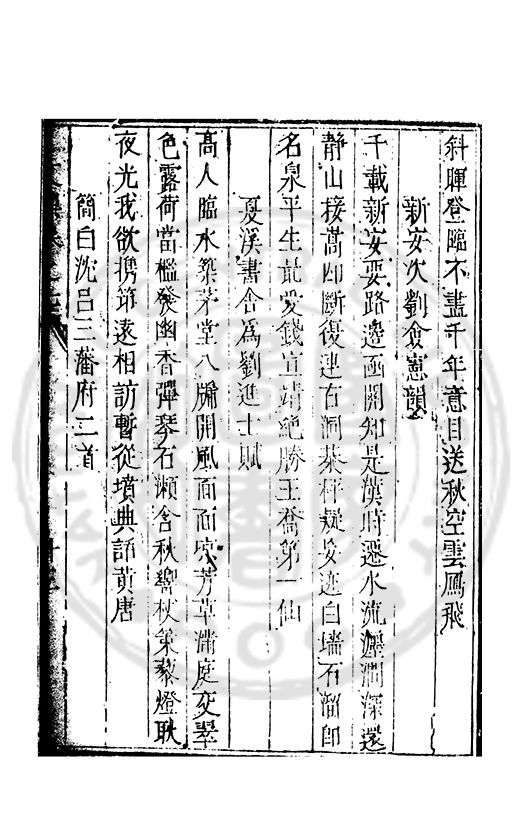 斜暉登臨不盡千年意目送秋空雲鳳飛
新安次劉僉憲韻
千載新安要路邊函關知是漢時遷水流瀍澗深還
靜山接嵩邙斷復連右洞棊枰疑妄迹白墻石溜即
名泉平生最愛錢宣靖絕勝王喬第一仙
夏溪書舍為劉進士賦
高人臨水築茅堂八牖開風面面凉芳草滿庭交翠
色露荷當檻發幽香彈琴石瀨含秋響杖策藜燈耿
夜光我欲携筇遠相訪暫從墳典話黄唐
簡白沈呂三藩府二首